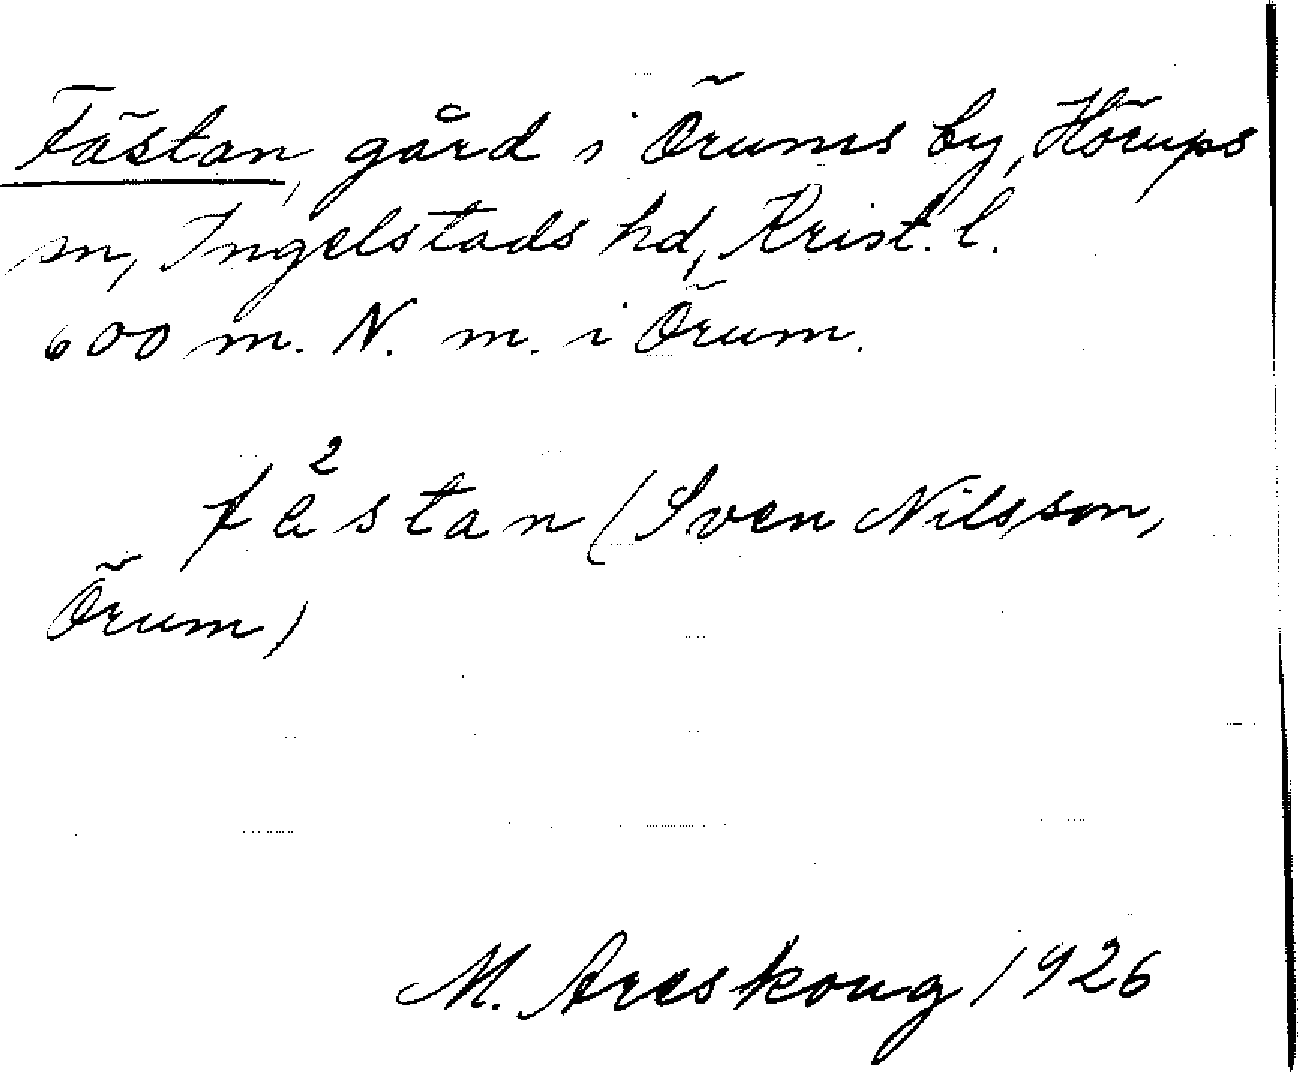 Fästan, gård i Örums by, Hörups
sn, Ingelstads hd, Krist. l.
600 m. N. m. i Örum.
fä²stan (Sven Nilsson,
Örum)
M. Areskoug 1926